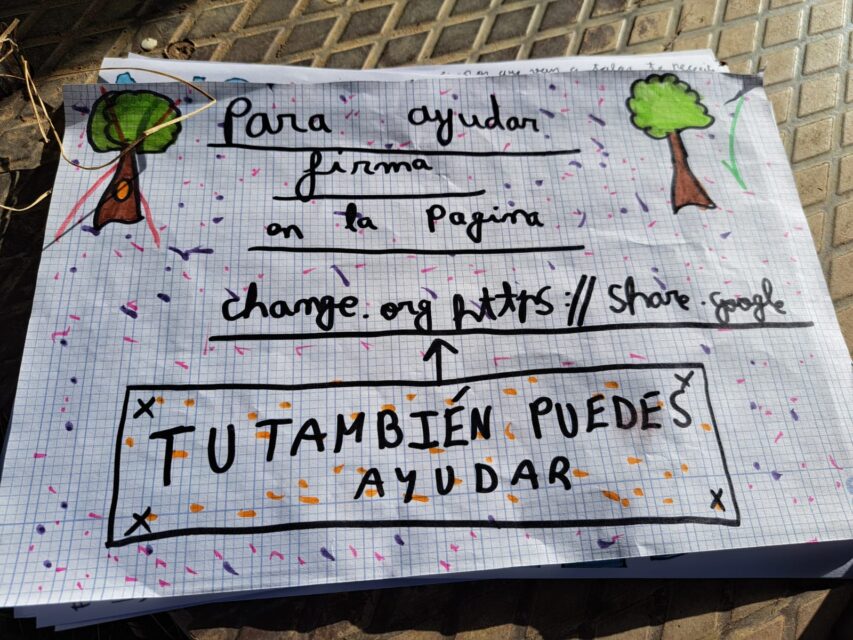 Para ayudar
firma
en la Pagina
change.org https:// share.google
TU TAMBIÉN PUEDES
AYUDAR